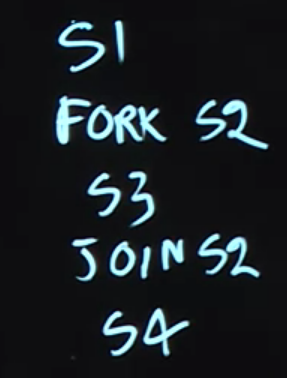 S1
FORK S2
S3
JOIN S2
S4